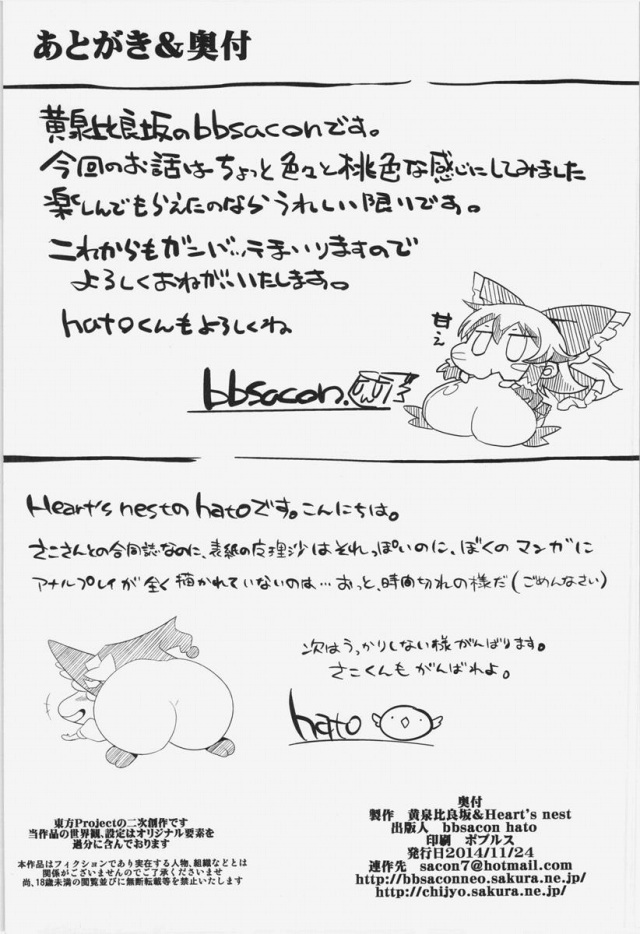 あとがき＆奥付
黄泉比良坂のbbsaconです。
今回のお話はちょっと色々と桃色な感じにしてみました
楽しんでもらえたのならうれしい限りです。
これからもガンバッテまいりますので
よろしくおねがいいたします。
hatoくんもよろしくね
甘え
bbsacon.
Heart's nestの hatoです。こんにちは。
さこさんとの合同誌なのに、表紙の魔理沙はそれっぽいのに、ぼくのマンガに
アナルプレイが全く描かれていないのは…おっと、時間切れの様だ(ごめんなさい)
次はうっかりしない様がんばります。
さこくんもがんばれよ。
hato
東方Projectの二次創作です
当作品の世界観、設定はオリジナル要素を
過分に含んでおります
本作品はフィクションであり実在する人物、組織などとは
関係がございませんのでご了承くださいませ
尚、18歳未満の閲覧並びに無断転載等を禁止いたします
奥付
製作　黄泉比良坂&Heart's nest
出版人　bbsacon hato
印刷　ポプルス
発行日2014/11/24
連作先　sacon7@hotmail.com
http://bbsaconneo.sakura.ne.jp/
http://chijyo.sakura.ne.jp/